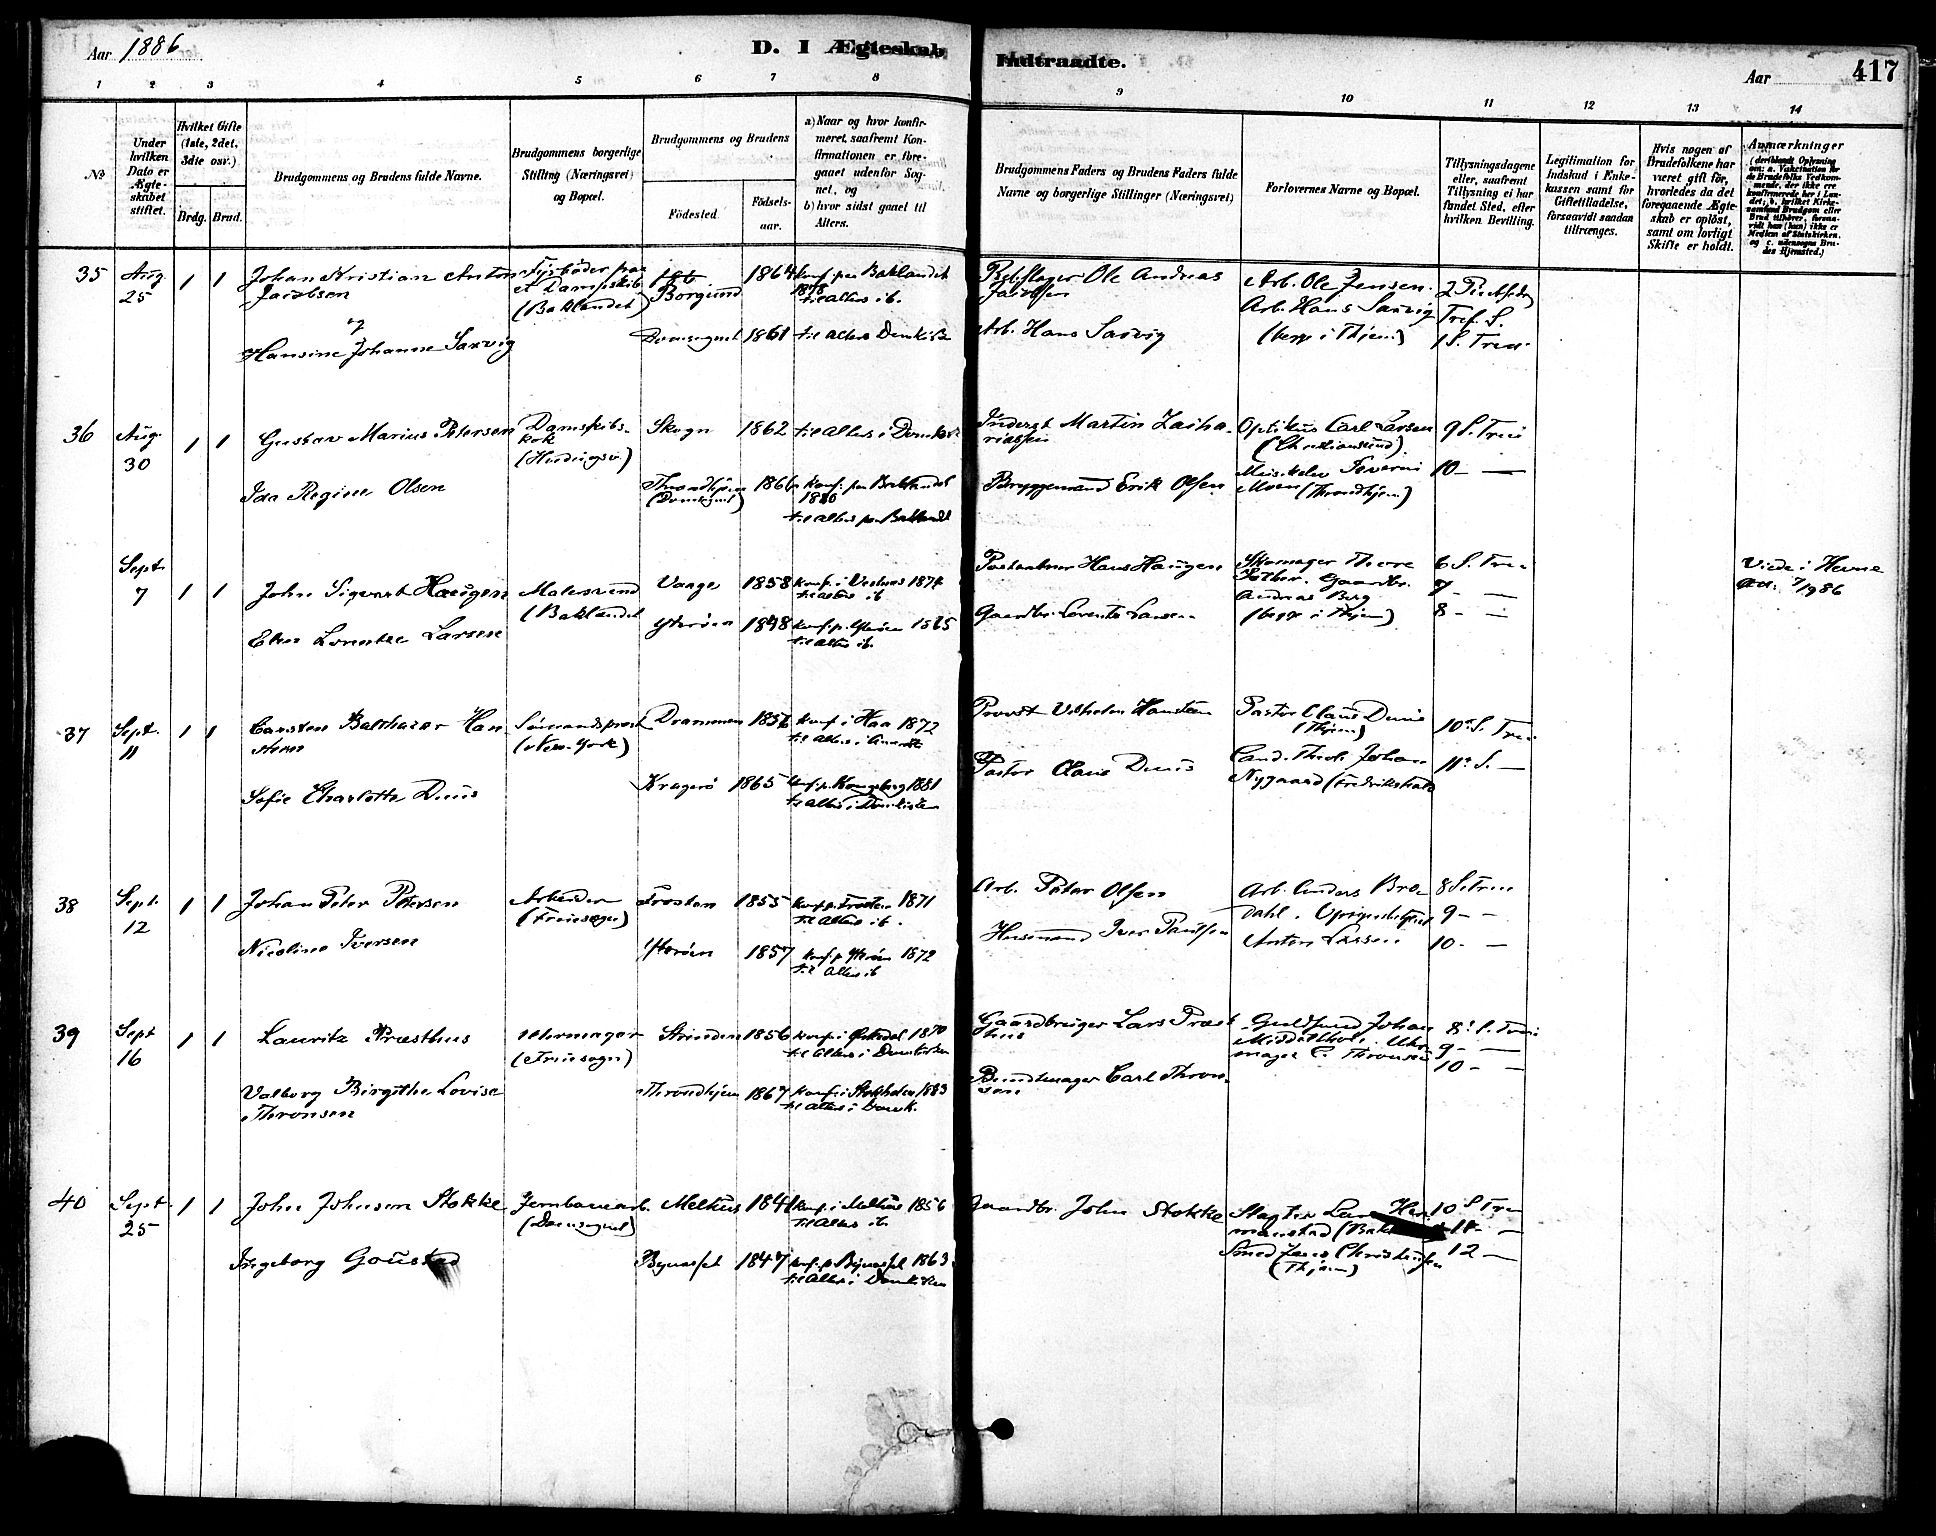 Aar 1886
D. I Ægteskab Indtraadte.
Aar
417
1 2 3 4 5 6 7 8 9 10 11 12 13 14
No
Under hvilken Dato er Ægteskabet stiftet.
Hvilket Gifte (1ste, 2det, 3die osv.)
Brdg. Brud.
Brudgommens og Brudens fulde Navne.
Brudgommens borgerlige Stilling (Næringsvei) og Bopæl.
Brudgommens og Brudens
Födested
Födselsaar.
a) Naar og hvor konfirmeret, saafremt Konfirmationen er foregaaet udenför Sognet, og
b) hvor sidst gaaet til Alters.
Brudgommens Faders og Brudens Faders fulde Navne og borgerlige Stillinger (Næringsvei)
Forlovernes Navne og Bopæl.
Tillysningsdagene eller, saafremt Tillysning ei har fundet Sted, efter hvilken Bevilling.
Legitimation for Indskud i Enkekassen samt for Giftetilladelse, forsaavidt saadan tiltrænges.
Hvis nogen af Brudefolkene har været gift för, hvorledes da det foregaaende Ægteskab er oplöst, samt om lovligt Skifte er holdt.
Anmærkninger
35 Aug. 25 1 1
Johan Kristian Anton Jacobsen
og
Hansine Johanne Saxvig
(Baklandet)
Borgund 1864 Konf. paa Baklandet 1878 til Alters ib.
Domsognet 1861 til Alters Domkirk
Rebslager Ole Andreas Jacobsen
Arb. Hans Saxvig
Arb. Ole Jensen.
Arb. Hans Saxvig
(begge i Thjem)
36 Aug. 30 1 1
Gustav Marius Petersen
Damskibskok
Skogn 1862 til Alters i Domk
Ida Regine Olsen
Throndhjem (Domsognet) 1866 Konf. paa Baklandet 1880
til Alters paa Baklandet
Martin Zachariassen
Bryggemand Erik Olsen
Optikus Carl Larsen
(Christiansund)
Moen (Throndhjem)
9 S. Trin
10 – —
Sept. 7 1 1
John Sigvart Haugen
Malersvend (Baklandet
Vaage 1858 Konf. i Vestnes 1874
til Alters ib
Elen Lorentze Larsen
Ytterøen 1848 Konf. p. Ytterøen 1865
til Alters ib.
Hans Haugen
Gaardbr. Lorents Larsen
Skomager
Gaardbr.
Andreas Berg
(begge i Thjem)
6 S. Trin
7 – —
8 – —
Viede i Hevne
7/9 86
37 Sept. 11 1 1
Carsten Balthazar Hansteen
Sømandsprest
(New-York)
Drammen 1856 Konf. i Haa 1872
Sofie Charlotte Duus
Kragerö 1865 Konf. p. Kongsberg 1881
til Alters i Domkirken
Provst Vilhelm Hansteen
Pastor Claus Duus
Pastor Claus Duus
(Thjem)
Cand. Theol. Johan
Nygaard (Fredrikshald
10 S. Trin
11 S. —
38 Sept. 12 1 1
Johan Peter Petersen
Arbeider
(Fruesogn)
Frosten 1855 Konf. p. Frosten 1871
til Alters ib.
Nicoline Iversen
Ytterøen 1857 Konf. p. Ytterøen 1872
til Alters ib
Arb. Peter Olsen
Husmand Iver Paulsen
Arb. Anders Brodahl.
Anton Larsen
8 S. Trin
9 – –
10 – —
39 Sept 16 1 1
Lauritz Præsthus
Uhrmager
(Fruesogn)
Strinden 1856 Konf. i 1870
til Alters i Domkirken
Valborg Birgithe Lovise Thronsen
Throndhjem 1867 Konf. i Stokholm 1883
til Alters i Domk.
Gaardbruger Lars Præsthus
Bundtmager Carl Thronsen
Guldsmed Johan
Middelthon. Uhrmager C. Thronsen
8 S. Trin
9 – —
10 – —
40 Sept. 25 1 1
John Johnsen Stokke
Jernbanearb.
(Domsognet)
Melhus 1841 Konf. i Melhus 1856
til Alters ib.
Ingeborg Goustad
Bynesset 1847 Konf. p. Bynesset 1863
til Alters i Domkirken
Gaardbr. John Stokke
Slagter Lars Hermanstad
Smed Jens Christensen
(Thjem)
10 S Trin
11 – –
12 —